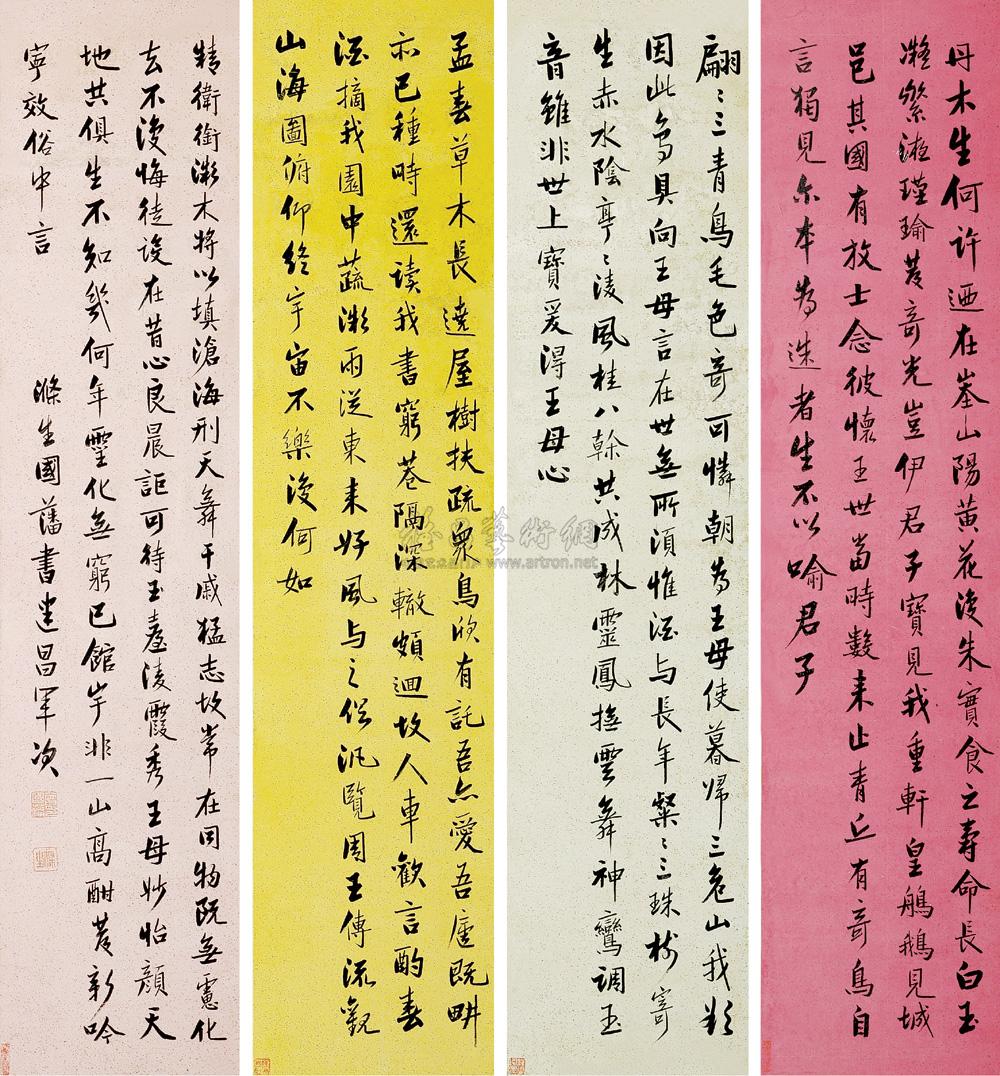 丹木生何許迺在峚山陽黃花復朱實食之壽命長白玉
凝素液瑾瑜發奇光豈伊君子寶見我重軒皇鵃鵝見城
邑其國有放士念彼懷王世當時數來止青丘有奇鳥自
言獨見尔本為迷者生不以喻君子
翩〻三青鳥毛色奇可憐朝為王母使暮歸三危山我欲
因此鳥具向王母言在世無所須惟酒与長年粲〻三珠樹寄
生赤水陰亭〻凌風桂八榦共成林靈鳳撫雲舞神鸞調玉
音雖非世上寶爰得王母心
孟春草木長遶屋樹扶疏眾鳥欣有託吾亦愛吾廬既畊
亦已種時還讀我書窮巷隔深轍頗迴故人車歡言酌春
酒摘我園中蔬微雨從東來好風与之俱汎覽周王傳流觀
山海圖俯仰終宇宙不樂復何如
精衛銜微木將以填滄海刑天舞干戚猛志故常在同物既無慮化
去不復悔徒設在昔心良晨詎可待玉臺凌霞秀王母妙怡顏天
地共俱生不知幾何年靈化無窮已館宇非一山高酣發新吟
寧效俗中言
滌生國藩書建昌軍次
雅昌藝術網
www.artron.net